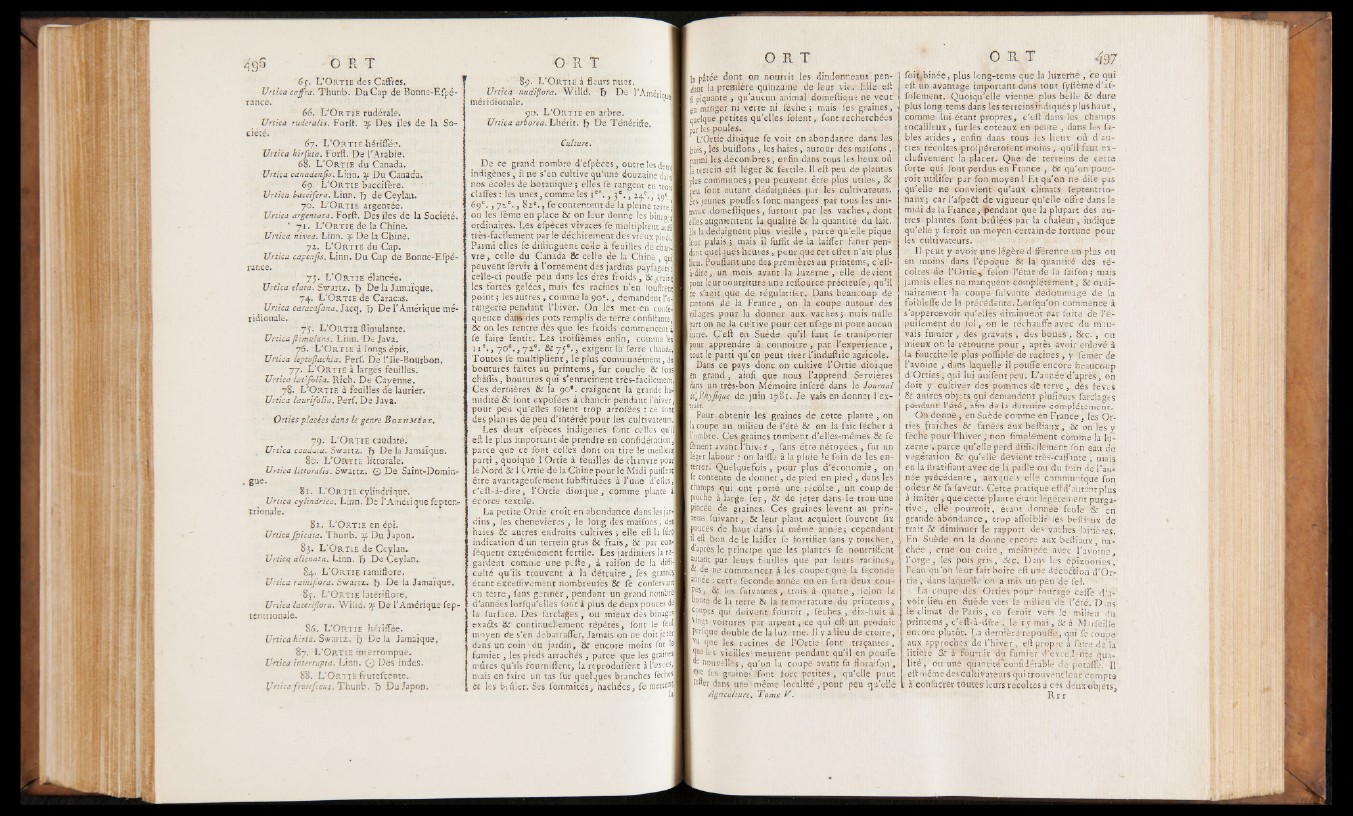 496 ORT
65. L'ORTIE des Caffres.
Urtica caffra. Thunb. Du Cap de Bonne-Espé-
rance.
66. L'ORTIE rudérale.
Urtica ruderalis. Forst. ♃ Des îles de la So-
ciété.
67. L'ORTIE hérissée.
Urtica hirsuta. Forst. De l'Arabie.
68. L'ORTIE du Canada.
Urtica canadensis. Linn. ♃ Du Canada.
69. L'ORTIE baccifère.
Urtica baccifera. Linn. ♄ de Ceylan.
70. L'ORTIE argentée.
Urtica argentata. Forst. Des îles de la Société.
71. L'ORTIE de la Chine.
Urtica nivea. Linn. ♃ De la Chine.
72. L'ORTIE du Cap.
Urtica capensis. Linn. Du Cap de Bonne-Espé-
rance.
73. L'ORTIE élancée.
Urtica elata. Swartz. ♄ De la Jamaïque.
74. L'ORTIE de Caracas.
Urtica caracasana. Jacq. ♄ De l'Amérique mé-
ridionale.
75. L'ORTIE stimulante.
Urtica stimulans. Linn. De Java.
76. L'ORTIE à longs épis.
Urtica leptostachia. Pers. De l'île-Bourbon.
77. L'ORTIE à larges feuilles.
Urtica latifolia. Rich. De Cayenne.
78. L'ORTIE à feuilles de laurier.
Urtica laurifolia. Pers. De Java.
Orties placées dans le genre BOEHMÈRE.
79. L'ORTIE caudate.
Urtica caudata. Swartz. ♄ De la Jamaïque.
80. L'ORTIE littorale.
Urtica littoralis. Swartz. ☉ De Saint-Domin-
gue.
81. L'ORTIE cylindrique.
Urtica cylindrica. Linn. De l'Amérique septen-
trionale.
82. L'ORTIE en épi.
Urtica spicata. Thunb. ♃ Du Japon.
83. L'ORTIE de Ceylan.
Urtica alienata. Linn. ♄ De Ceylan.
84. L'ORTIE ramiflore.
Urtica ramiflora. Swartz. ♄ De la Jamaïque.
85. L'ORTIE latériflore.
Urtica lateriflora. Willd. ♃ De l'Amérique sep-
tentrionale.
86. L'ORTIE hérissée.
Urtica hirta. Swartz. ♄ De la Jamaïque.
87. L'ORTIE interrompue.
Urtica interrupta. Linn. ☉ Des Indes.
88. L'ORTIE frutescente.
Urtica frutescens. Thunb. ♄ Du Japon.
ORT
89. L'ORTIE à fleurs nues.
Urtica nudiflora. Willd. ♄ De l'Amérique
méridionale.
90. L'ORTIE en arbre.
Urtica arborea. Lhérit. ♄ De Ténériffe.
Culture.
De ce grand nombre d'espèces, outre les deux
indigènes, il ne s'en cultive qu'une douzaine dans
nos écoles de botanique; elles se rangent en trois
classes: les unes, comme les 1re., 3e., 24e., 49e.,
69e., 71e., 82e., se contentent de la pleine terre;
on les sème en place & on leur donne les binages
ordinaires. Les espèces vivaces se multiplient aussi
très-facilement par le déchirement des vieux pieds.
Parmi elles se distinguent celle à feuilles de chan-
vre, celle du Canada & celle de la Chine, qui
peuvent servir à l'ornement des jardins paysagers;
celle-ci pousse peu dans les étés froids, & craint
les fortes gelées, mais ses racines n'en souffrent
point; les autres, comme la 90e., demandent l'o-
rangerie pendant l'hiver. On les met en consé-
quence dans des pots remplis de terre consistante,
& on les rentre dès que les froids commencent à
se faire sentir. Les troisièmes enfin, comme les
12e., 70e., 72e. & 75e., exigent la serre chaude.
Toutes se multiplient, le plus communément, de
boutures faites au printems, sur couche & sous
châssis, boutures qui s'enracinent très-facilement.
Ces dernières & la 90e. craignent la grande hu-
midité & sont exposées à chancir pendant l'hiver,
pour peu qu'elles soient trop arrosées: ce sont
des plantes de peu d'intérêt pour les cultivateurs.
Les deux espèces indigènes sont celles qu'il
est le plus important de prendre en considération,
parce que ce sont celles dont on tire le meilleur
parti, quoique l'Ortie à feuilles de chanvre pour
le Nord & l'Ortie de la Chine pour le Midi puissent
être avantageusement substituées à l'une d'elles,
c'est-à-dire, l'Ortie dioïque, comme plante à
écorce textile.
La petite Ortie croît en abondance dans les jar-
dins, les chenevières, le long des maisons, des
haies & autres endroits cultivés; elle est la sûre
indication d'un terrein gras & frais, & par con-
séquent extrêmement fertile. Les jardiniers la re-
gardent comme une peste, à raison de la diffi-
culté qu'ils trouvent à la détruire, ses graines
étant excessivement nombreuses & se conservant
en terre, sans germer, pendant un grand nombre
d'années lorsqu'elles sont à plus de deux pouces de
la surface. Des sarclages, ou mieux des binages
exacts & continuellement répétés, sont le seul
moyen de s'en débarrasser. Jamais on ne doit jeter
dans un coin du jardin, & encore moins sur le
fumier, les pieds arrachés, parce que les graines
mûres qu'ils fournissent, la reproduisent à l'excès,
mais en faire un tas sur quelques branches sèches
& les brûler. Ses sommités, hachées, se mettent
la
ORT
la pâtée dont on nourrit les dindonneaux pen-
dant la première quinzaine de leur vie. Elle est
si piquante, qu'aucun animal domestique ne veut
en manger ni verte ni sèche; mais ses graines,
quelque petites qu'elles soient, sont recherchées
par les poules.
L'Ortie dioïque se voit en abondance dans les
bois, les buissons, les haies, autour des maisons,
parmi les décombres, enfin dans tous les lieux où
le terrein est léger & fertile. Il est peu de plantes
plus communes; peu peuvent être plus utiles, &
peu sont autant dédaignées par les cultivateurs.
Ses jeunes pousses sont mangées par tous les ani-
maux domestiques, surtout par les vaches, dont
elles augmentent la qualité & la quantité du lait.
Ils la dédaignent plus vieille, parce qu'elle pique
leur palais; mais il suffit de la laisser faner pen-
dant quelques heures, pour que cet effet n'ait plus
lieu. Poussant une des premières au printems, c'est-
à-dire, un mois avant la luzerne, elle devient
pour leur nourriture une ressource précieuse, qu'il
ne s'agit que de régulariser. Dans beaucoup de
cantons de la France, on la coupe autour des
villages pour la donner aux vaches; mais nulle
part on ne la cultive pour cet usage ni pour aucun
autre. C'est en Suède qu'il faut se transporter
pour apprendre à connoître, par l'expérience,
tout le parti qu'en peut tirer l'industrie agricole.
Dans ce pays donc on cultive l'Ortie dioïque
en grand, ainsi que nous l'apprend Servières
dans un très-bon Mémoire inséré dans le Journal
de Physique de juin 1781. Je vais en donner l'ex-
trait.
Pour obtenir les graines de cette plante, on
la coupe au milieu de l'été & on la fait sécher à
l'ombre. Ces graines tombent d'elles-mêmes & se
sèment avant l'hiver, sans être nétoyées, sur un
léger labour: on laisse à la pluie le soin de les en-
terrer. Quelquefois, pour plus d'économie, on
se contente de donner, de pied en pied, dans les
champs qui ont porté une récolte, un coup de
pioche à large fer, & de jeter dans le trou une
pincée de graines. Ces graines lèvent au prin-
tems suivant, & leur plant acquiert souvent six
pouces de haut dans la même année; cependant
il est bon de le laisser se fortifier sans y toucher,
d'après le principe que les plantes se nourrissent
autant par leurs feuilles que par leurs racines,
& de ne commencer à les couper que la seconde
année: cette seconde année on en fera deux cou-
pes, & les suivantes, trois à quatre, selon la
bonté de la terre & la température du printems,
coupes qui doivent fournir, sèches, dix-huit à
vingt voitures par arpent, ce qui est un produit
presque double de la luzerne. Il y a lieu de croire,
vu que les racines de l'Ortie sont traçantes,
que les vieilles meurent pendant qu'il en pousse
de nouvelles, qu'on la coupe avant sa floraison,
que ses graines sont fort petites, qu'elle peut
rester dans une même localité, pour peu qu'elle
Agriculture. Tome V.
ORT 497
soit binée, plus long-tems que la luzerne, ce qui
est un avantage important dans tout système d'as-
solement. Quoiqu'elle vienne plus belle & dure
plus long-tems dans les terreins indiqués plus haut,
comme lui étant propres, c'est dans les champs
rocailleux, sur les coteaux en pente, dans les sa-
bles arides, enfin dans tous les lieux où d'au-
tres récoltes prospéreroient moins, qu'il faut ex-
clusivement la placer. Que de terreins de cette
sorte qui sont perdus en France, & qu'on pour-
roit utiliser par son moyen! Et qu'on ne dise pas
qu'elle ne convient qu'aux climats septentrio-
naux; car l'aspect de vigueur qu'elle offre dans le
midi de la France, pendant que la plupart des au-
tres plantes sont brûlées par la chaleur, indique
qu'elle y seroit un moyen certain de fortune pour
les cultivateurs.
Il peut y avoir une légère différence en plus ou
en moins dans l'époque & la quantité des ré-
coltes de l'Ortie, selon l'état de la saison; mais
jamais elles ne manquent complètement, & ordi-
nairement la coupe suivante dédommage de la
foiblesse de la précédente. Lorsqu'on commence à
s'appercevoir qu'elles diminuent par suite de l'é-
puisement du sol, on le réchauffe avec du mau-
vais fumier, des gravats, des boues, &c., ou
mieux on le retourne pour, après avoir enlevé à
la fourche le plus possible de racines, y semer de
l'avoine, dans laquelle il pousse encore beaucoup
d'Orties, qui lui nuisent peu. L'année d'après, on
doit y cultiver des pommes de terre, des fèves
& autres objets qui demandent plusieurs sarclages
pendant l'été, afin de la détruire complètement.
On donne, en Suède comme en France, les Or-
ties fraîches & fanées aux bestiaux, & on les y
sèche pour l'hiver, non simplement comme la lu-
zerne, parce qu'elle perd difficilement son eau de
végétation & qu'elle devient très-cassante, mais
en la stratifiant avec de la paille ou du foin de l'an-
née précédente, auxquels elle communique son
odeur & sa saveur. Cette pratique est d'autant plus
à imiter, que cette plante étant légèrement purga-
tive, elle pourroit, étant donnée seule & en
grande abondance, trop affoiblir les bestiaux de
trait & diminuer le rapport des vaches laitières.
En Suède on la donne encore aux bestiaux, ha-
chée, crue ou cuite, mélangée avec l'avoine,
l'orge, les pois gris, &c. Dans les épizooties,
l'eau qu'on leur fait boire est une décoction d'Or-
tie, dans laquelle on a mis un peu de sel.
La coupe des Orties pour fourrage cesse d'a-
voir lieu en Suède vers le milieu de l'été. Dans
le climat de Paris, ce seroit vers le milieu du
printems, c'est-à-dire, le 15 mai, & à Marseille
encore plutôt. La dernière repousse, qui se coupe
aux approches de l'hiver, est propre à faire de la
litière & à fournir du fumier d'excellente qua-
lité, ou une quantité considérable de potasse. Il
est même des cultivateurs qui trouvent leur compte
à consacrer toutes leurs récoltes à ces deux objets,
Rrr